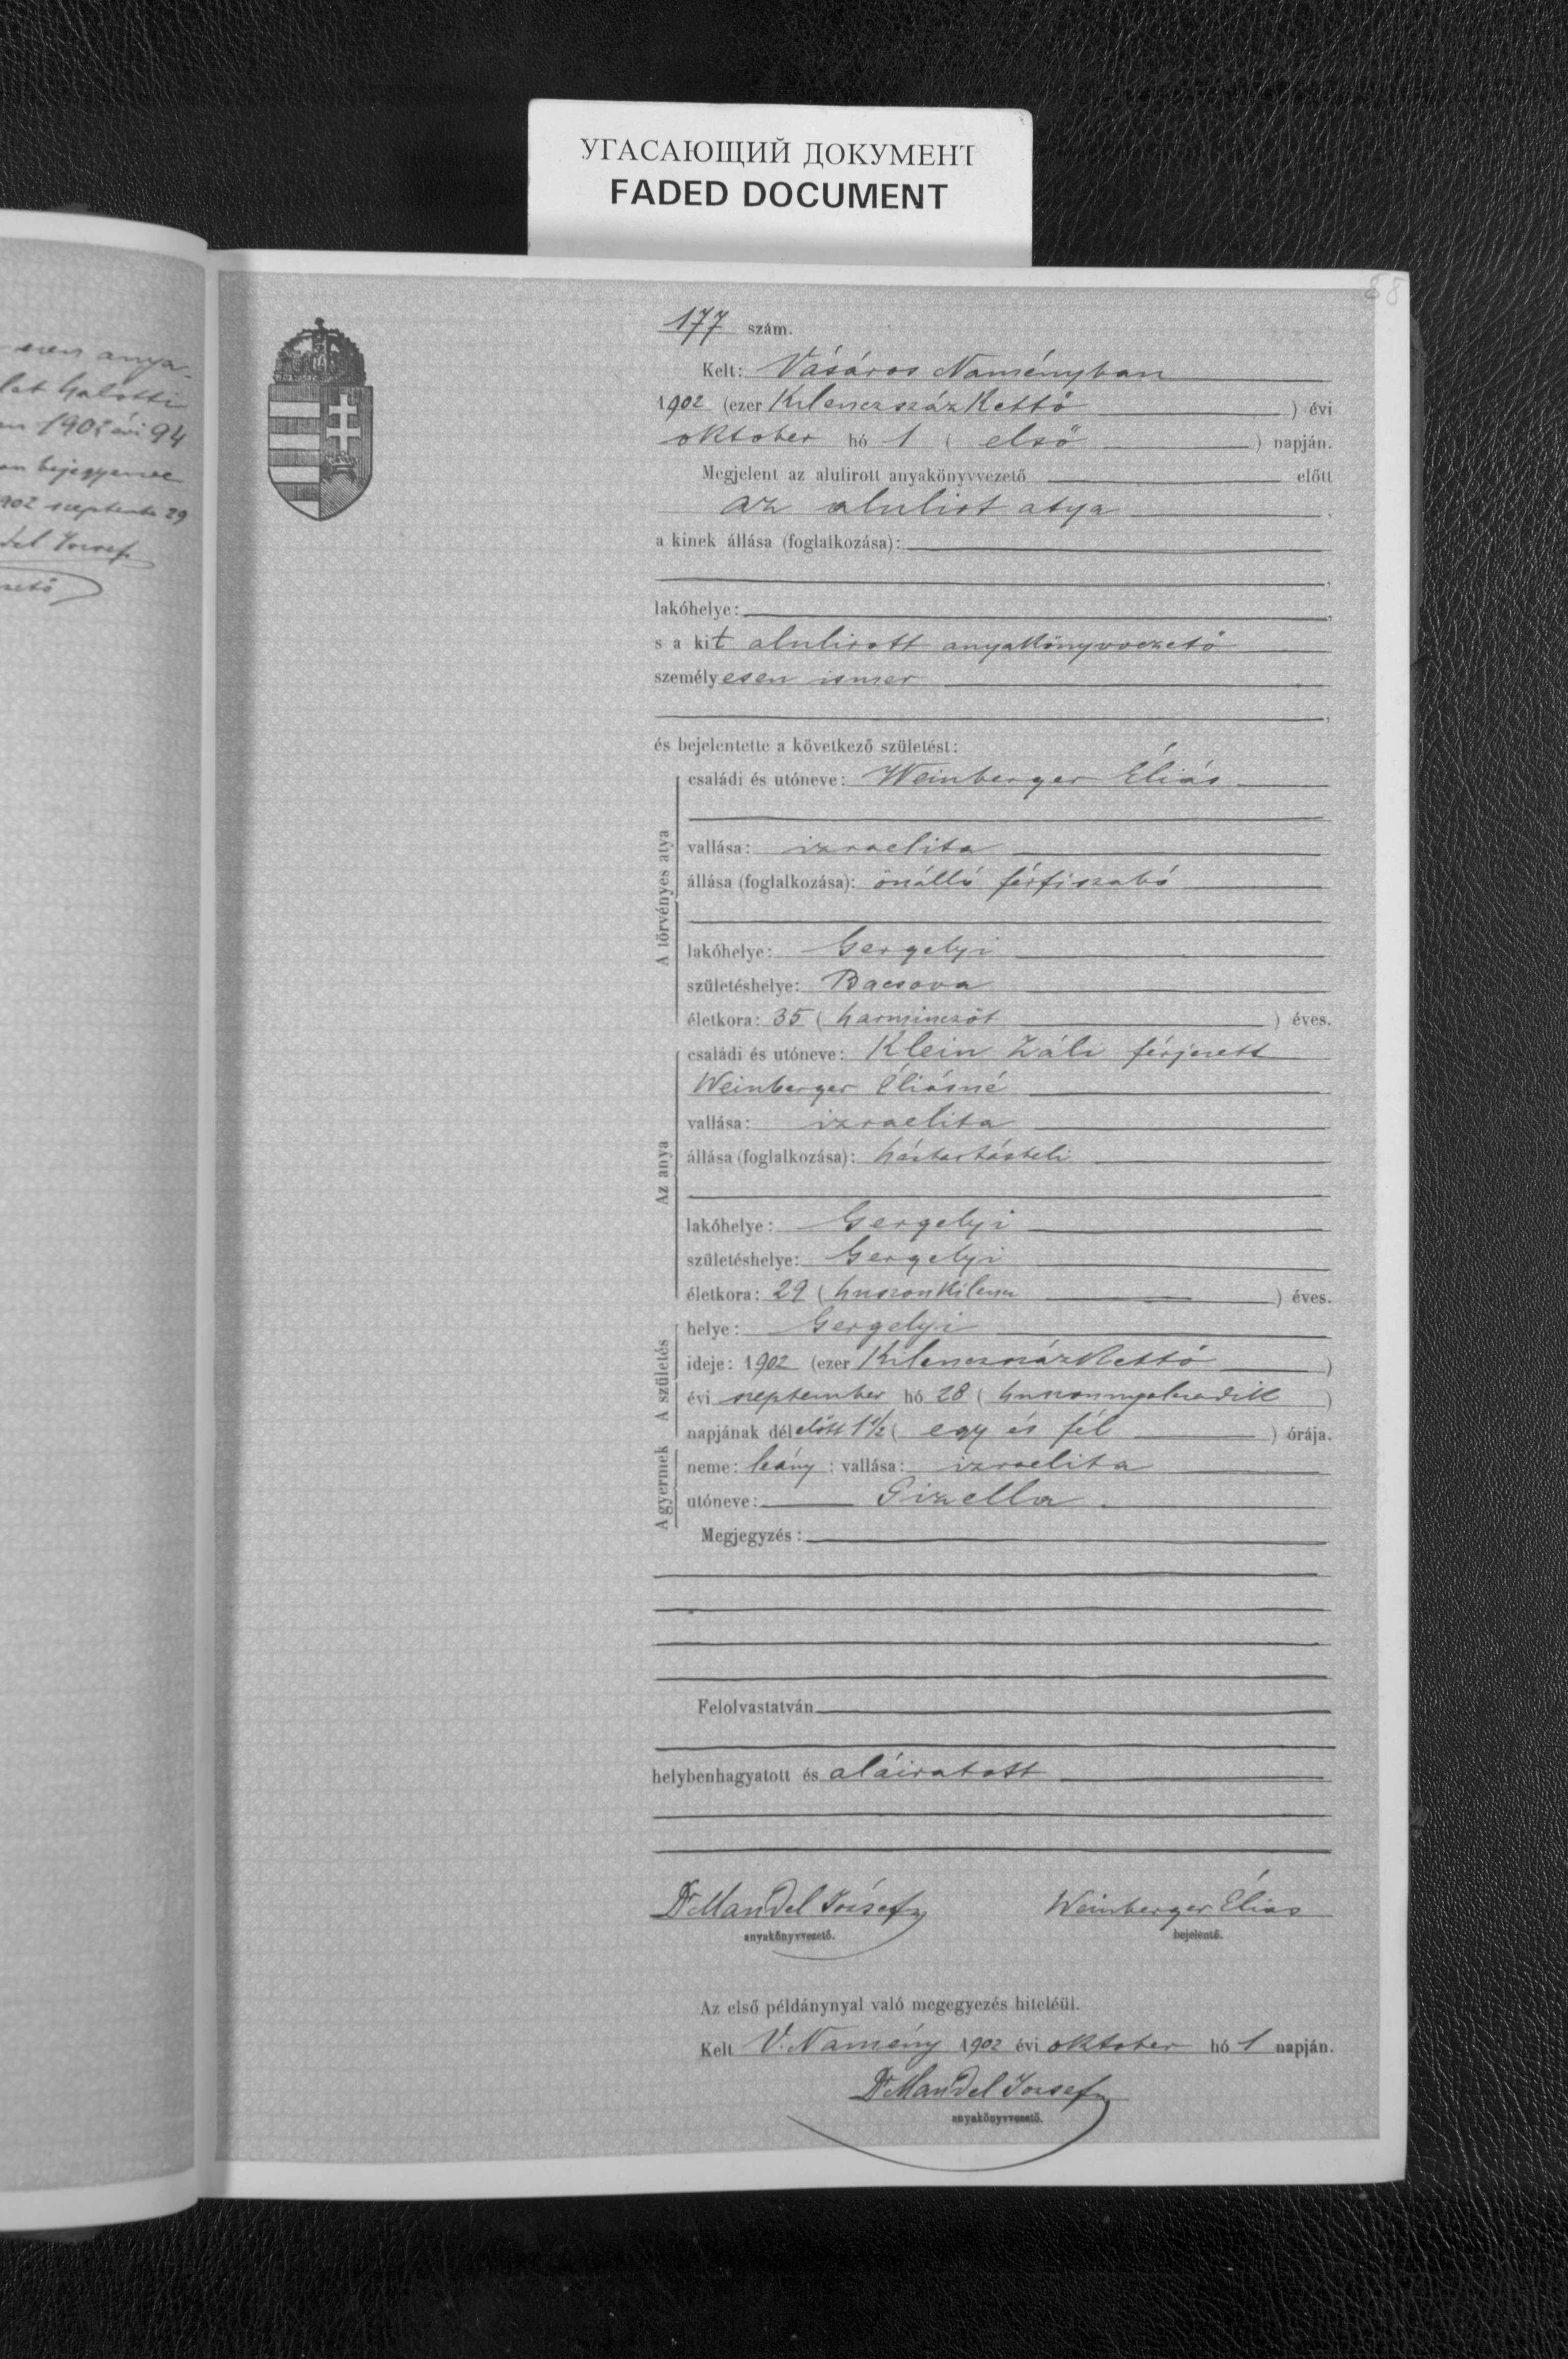 УГАСАЮЩИЙ ДОКУМЕНТ
FADED DOCUMENT
88
anya-
halotti
1902 évi 94
bejegyezve
902 29
del József
177 szám.
Kelt: Vásáros Naményban
1902 (ezer kilenczszázkettő) évi
oktober hó 1 (első) napján.
Megjelent az alulirott anyakönyvvezető előtt
az alulirt atya,
a kinek állása (foglalkozása):
lakóhelye:
s a kit alulirott anyakönyvvezető
személyesen ismer
és bejelentette a következő születést:
A törvényes atya
családi és utóneve: Weinberger Éliás
vallása: izraelita
állása (foglalkozása): önálló férfiszabó
lakóhelye: Gergelyi
születéshelye: Bacsova
életkora: 35 (harminczöt) éves.
Az anya
családi és utóneve: Klein Záli férjezett
Weinberger Éliásné
vallása: izraelita
állása (foglalkozása): háztartásteli
lakóhelye: Gergelyi
születéshelye: Gergelyi
életkora: 29 (huszonkilencz) éves.
A születés
helye: Gergelyi
ideje: 1902 (ezer kilenczszázkettő)
évi szeptember hó 28 (huszonnyolczadik)
napjának délelőtt 1 1/2 (egy és fél) órája.
A gyermek
neme: leány; vallása: izraelita
utóneve: Gizella
Megjegyzés:
Felolvastatván
helybenhagyatott és aláiratott
Dr Mandel József Weinberger Éliás
anyakönyvvezető. bejelentő.
Az első példánynyal való megegyezés hiteléül.
Kelt V. Namény 1902 évi oktober hó 1 napján.
Dr Mandel József
anyakönyvvezető.